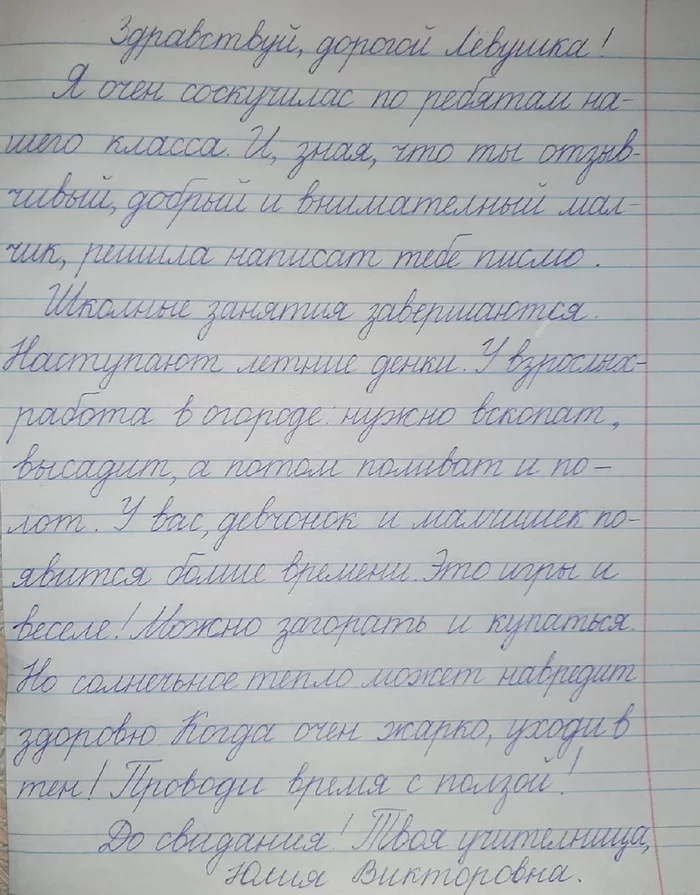 Здравствуй, дорогой Лёвушка!
Я очен соскучилас по ребятам на-
шего класса. И, зная, что ты отзыв-
чивый, добрый и внимателный мал-
чик, решила написат тебе писмо.
Школные занятия завершаются.
Наступают летние денки. У взрослых-
работа в огороде: нужно вскопат,
высадит, а потом поливат и по-
лот. У вас, девчонок и малчишек по-
явится болше времени. Это игры и
веселе! Можно загорать и купаться.
Но солнечьное тепло может навредит
здоровю. Когда очен жарко, уходи в
тен! Проводи время с ползой!
До свидания! Твоя учителница,
Юлия Викторовна.